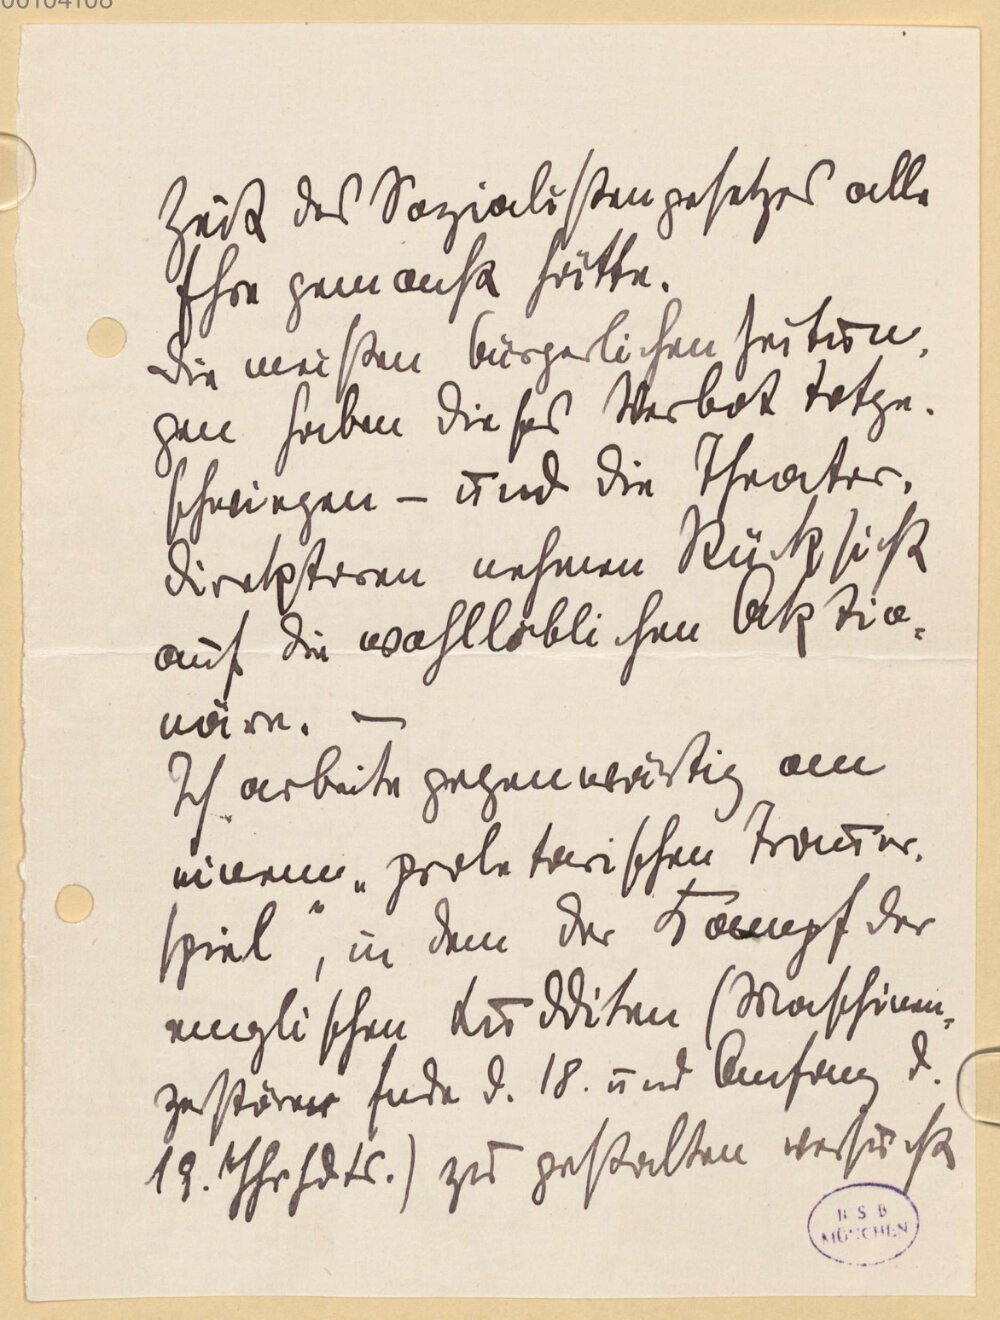 00104108
Zeit des Sozialistengesetzes alle
Ehre gemacht hätte.
Die meisten bürgerlichen Zeitun-
gen haben dieses Verbot totge-
schwiegen – und die Theater-
direktoren nehmen Rücksicht
auf die wohllöblichen Aktio-
näre. –
Ich arbeite gegenwärtig an
einem „proletarischen Trauer-
spiel", in dem der Kampf der
englischen Ludditen (Maschinen-
zerstörer Ende d. 18. und Anfang d.
19. Jhrhdts.) zu gestalten versucht
BSB
MÜNCHEN